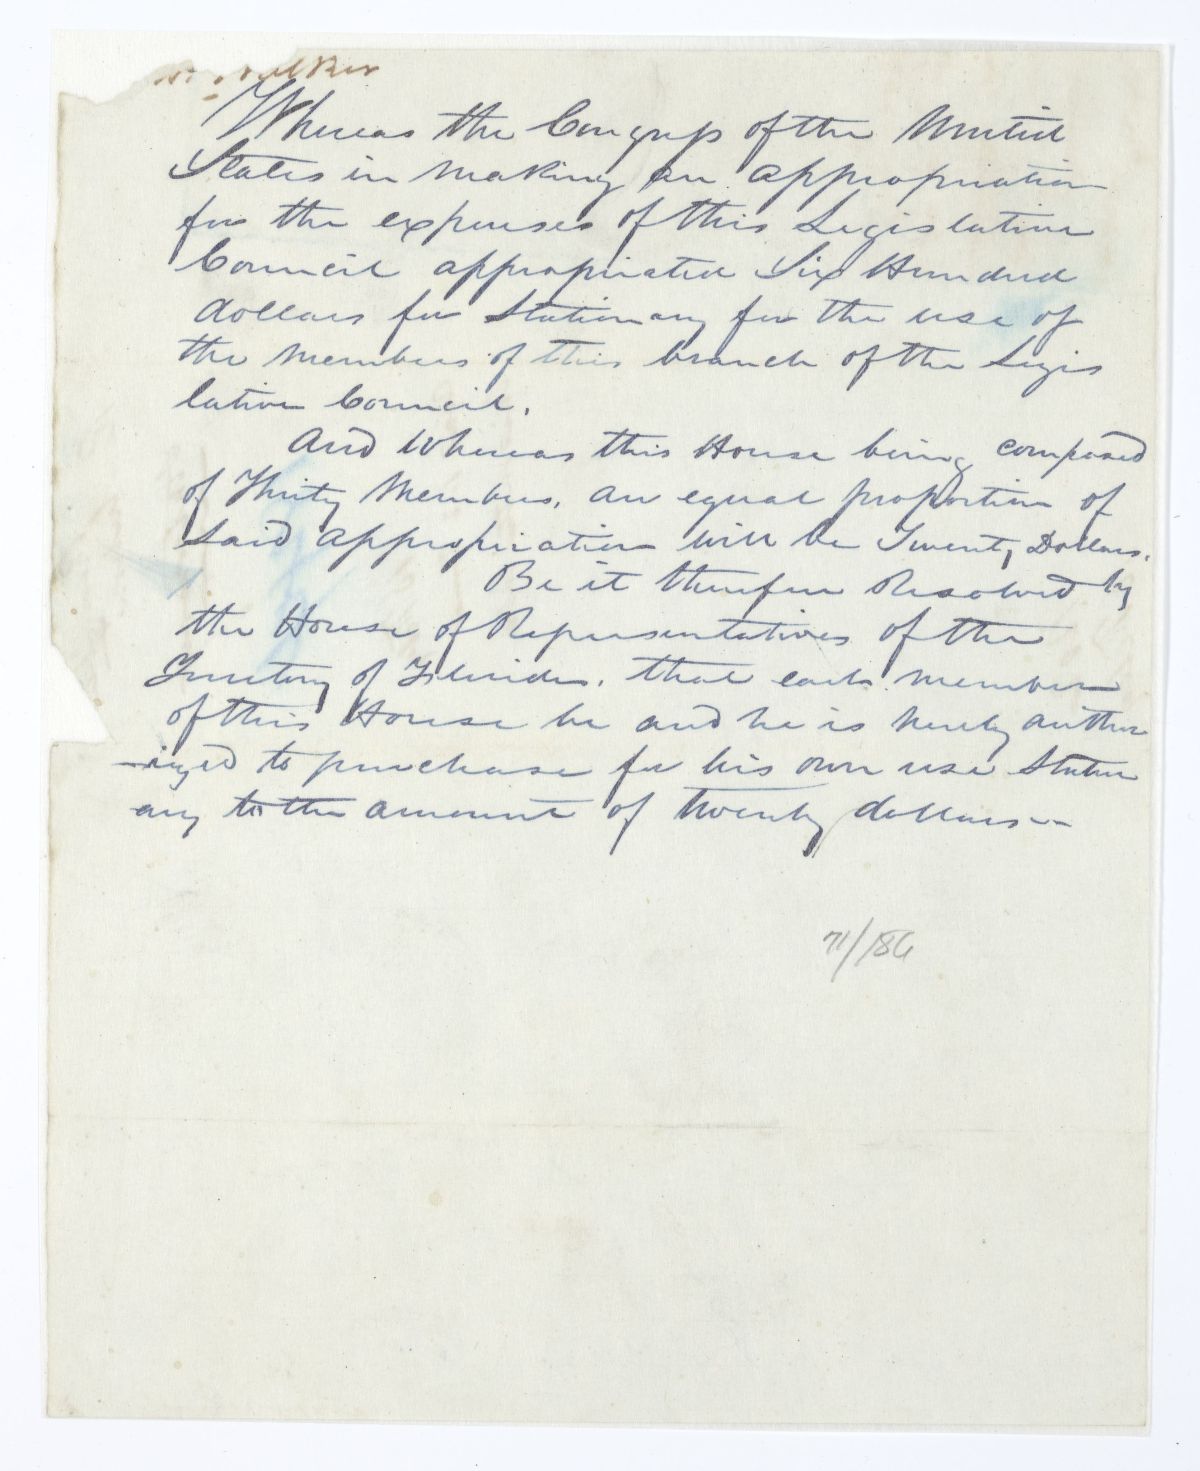 Walker
Whereas the Congress of the United
States in making an appropriation
for the expenses of this Legislative
Council appropriated Six Hundred
dollars for Stationary for the use of
the members of this branch of the Legis
lative Council.
And Whereas this House being composed
of Thirty Members, an equal proportion of
said appropriation will be Twenty Dollars.
Be it therefore Resolved by
the House of Representatives of the
Territory of Florida, that each member
of this House be and he is hereby author
-ized to purchase for his own use Station
ary to the amount of twenty dollars--
71/186